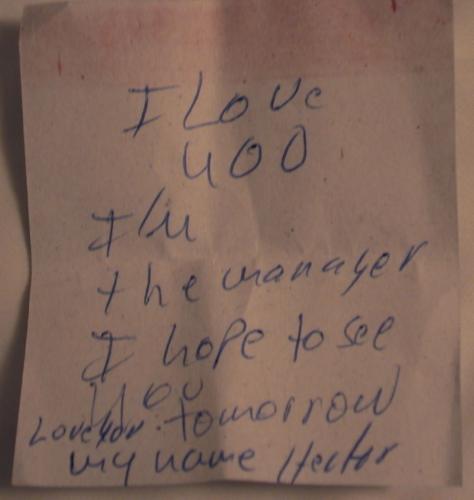 I Love
400
I'm
the manager
I hope to see
you
Love you. tomorrow
my name Hector